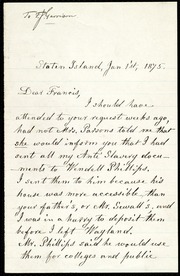 To F J Garrison
Staten Island, Jan 1st, 1875.
Dear Francis,
I should have
attended to your request weeks ago,
had not Mrs. Parsons told me that
she would inform you that I had
sent all my Anti Slavery docu-
ments to Wendell Phillips.
I sent them to him because his
house was more accessible than
your father's, or Mr. Sewall's, and
I was in a hurry to deposit them
before I left Wayland.
Mr. Phillips said he would use
them for colleges and public